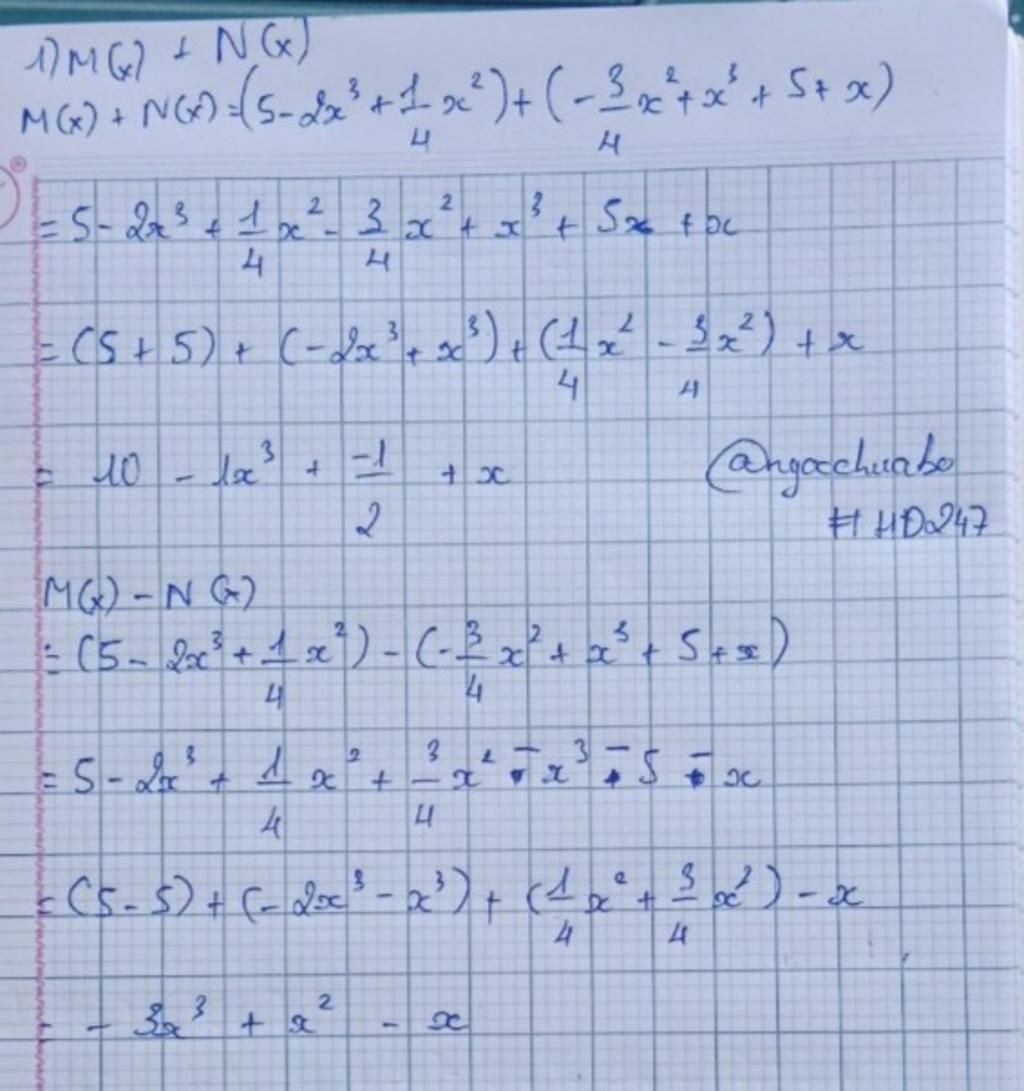 1) M(x) + N(x)
M(x) + N(x) = (5 - 2x³ + 1/4 x²) + (-3/4 x² + x³ + 5 + x)
= 5 - 2x³ + 1/4 x² - 3/4 x² + x³ + 5x + x
= (5 + 5) + (-2x³ + x³) + (1/4 x² - 3/4 x²) + x
= 10 - 1x³ + -1/2 + x
@ngocchuabo
# HD247
M(x) - N(x)
= (5 - 2x³ + 1/4 x²) - (-3/4 x² + x³ + 5 + x)
= 5 - 2x³ + 1/4 x² + 3/4 x² - x³ - 5 - x
= (5 - 5) + (-2x³ - x³) + (1/4 x² + 3/4 x²) - x
= - 3x³ + x² - x